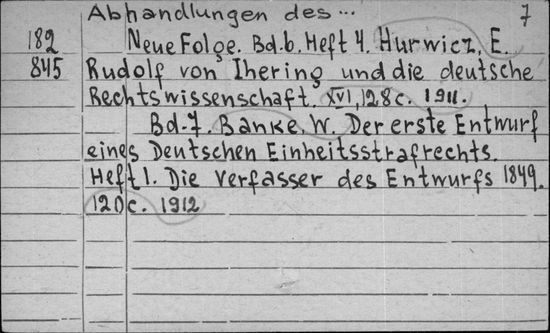 Abhandlungen des... 7
182 Neue Folge. Bd. 6. Heft 4. Hurwicz, E.
845 Rudolf von Ihering und die deutsche
Rechtswissenschaft. XVI, 128 c. 1911.
Bd. 7. Banke, W. Der erste Entwurf
eines Deutschen Einheitsstrafrechts.
Heft 1. Die Verfasser des Entwurfs 1849.
120 c. 1912